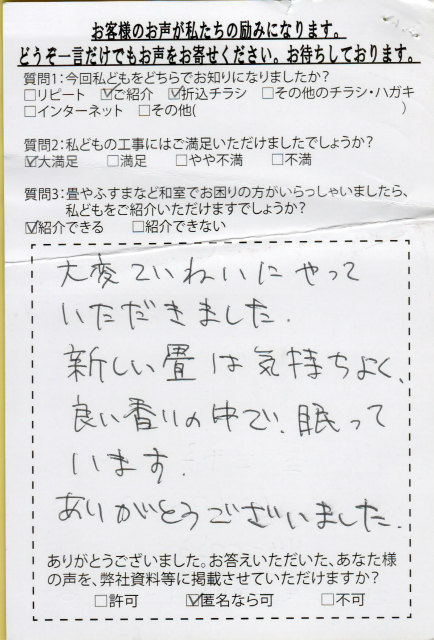 お客様のお声が私たちの励みになります。
どうぞ一言だけでもお声をお寄せください。お待ちしております。
質問1:今回私どもをどちらでお知りになりましたか?
□リピート ☑ご紹介 ☑折込チラシ □その他のチラシ・ハガキ
□インターネット □その他( )
質問2:私どもの工事にはご満足いただけましたでしょうか?
☑大満足 □満足 □やや不満 □不満
質問3:畳やふすまなど和室でお困りの方がいらっしゃいましたら、
私どもをご紹介いただけますでしょうか?
☑紹介できる □紹介できない
大変ていねいにやって
いただきました.
新しい畳は気持ちよく、
良い香りの中で、眠って
います.
ありがとうございました.
ありがとうございました。お答えいただいた、あなた様
の声を、弊社資料等に掲載させていただけますか?
□許可 ☑匿名なら可 □不可